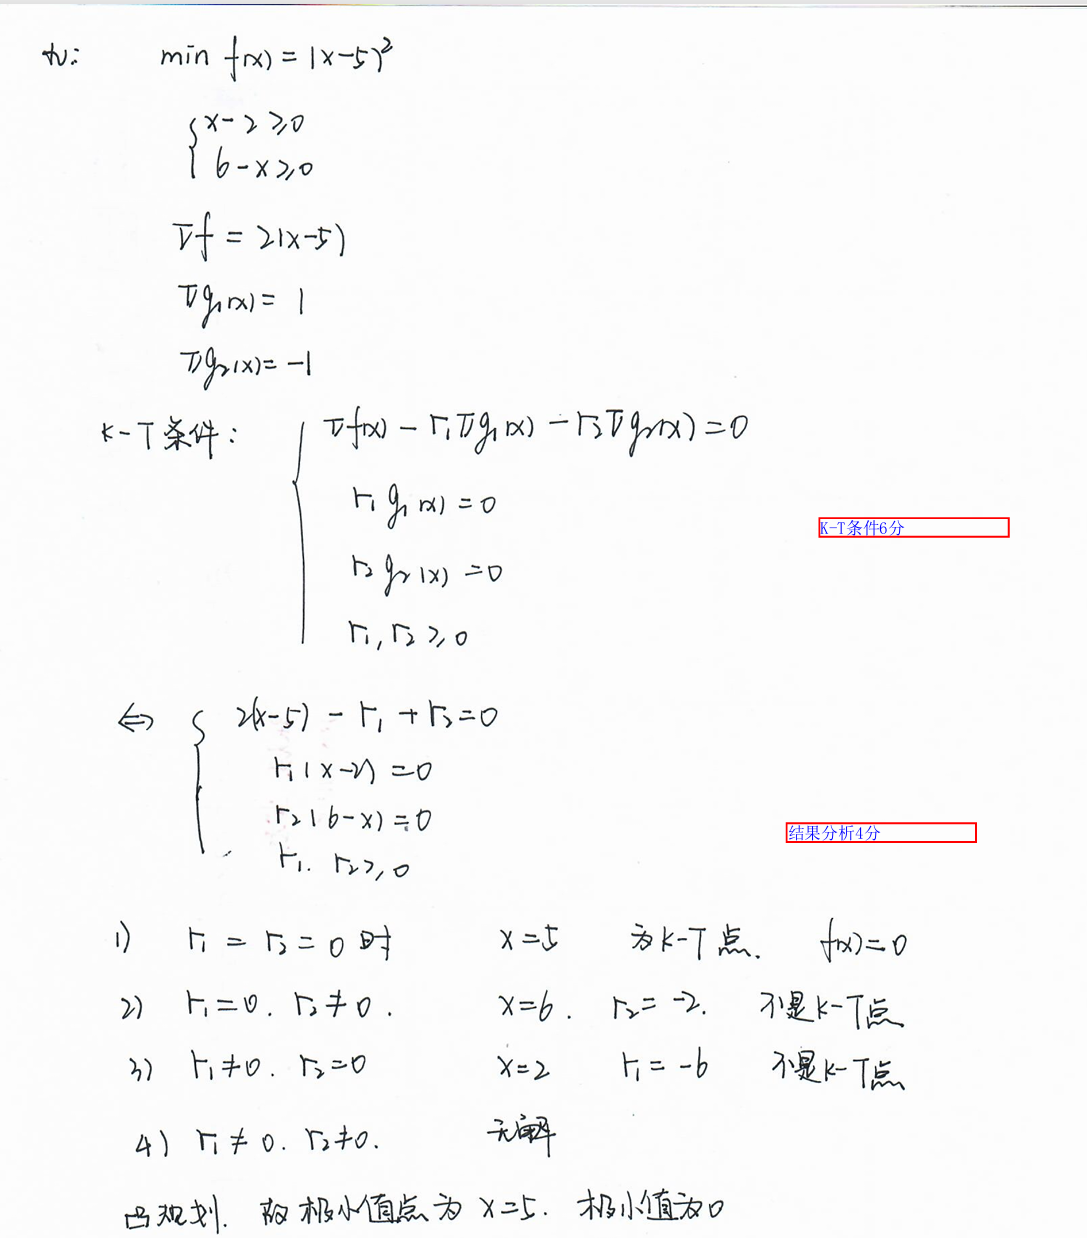 九: min f(x) = (x-5)²
{ x-2 ≥ 0
6-x ≥ 0
∇f = 2(x-5)
∇g₁(x) = 1
∇g₂(x) = -1
K-T条件: { ∇f(x) - r₁∇g₁(x) - r₂∇g₂(x) = 0
r₁ g₁(x) = 0
K-T条件6分
r₂ g₂(x) = 0
r₁, r₂ ≥ 0
⇔ { 2(x-5) - r₁ + r₂ = 0
r₁(x-2) = 0
r₂(6-x) = 0
结果分析4分
r₁. r₂ ≥ 0
1) r₁ = r₂ = 0 时 x=5 为K-T点. f(x)=0
2) r₁=0. r₂≠0. x=6. r₂=-2. 不是K-T点
3) r₁≠0. r₂=0 x=2 r₁=-6 不是K-T点
4) r₁≠0. r₂≠0. 无解
凸规划. 故极小值点为 x=5. 极小值为0